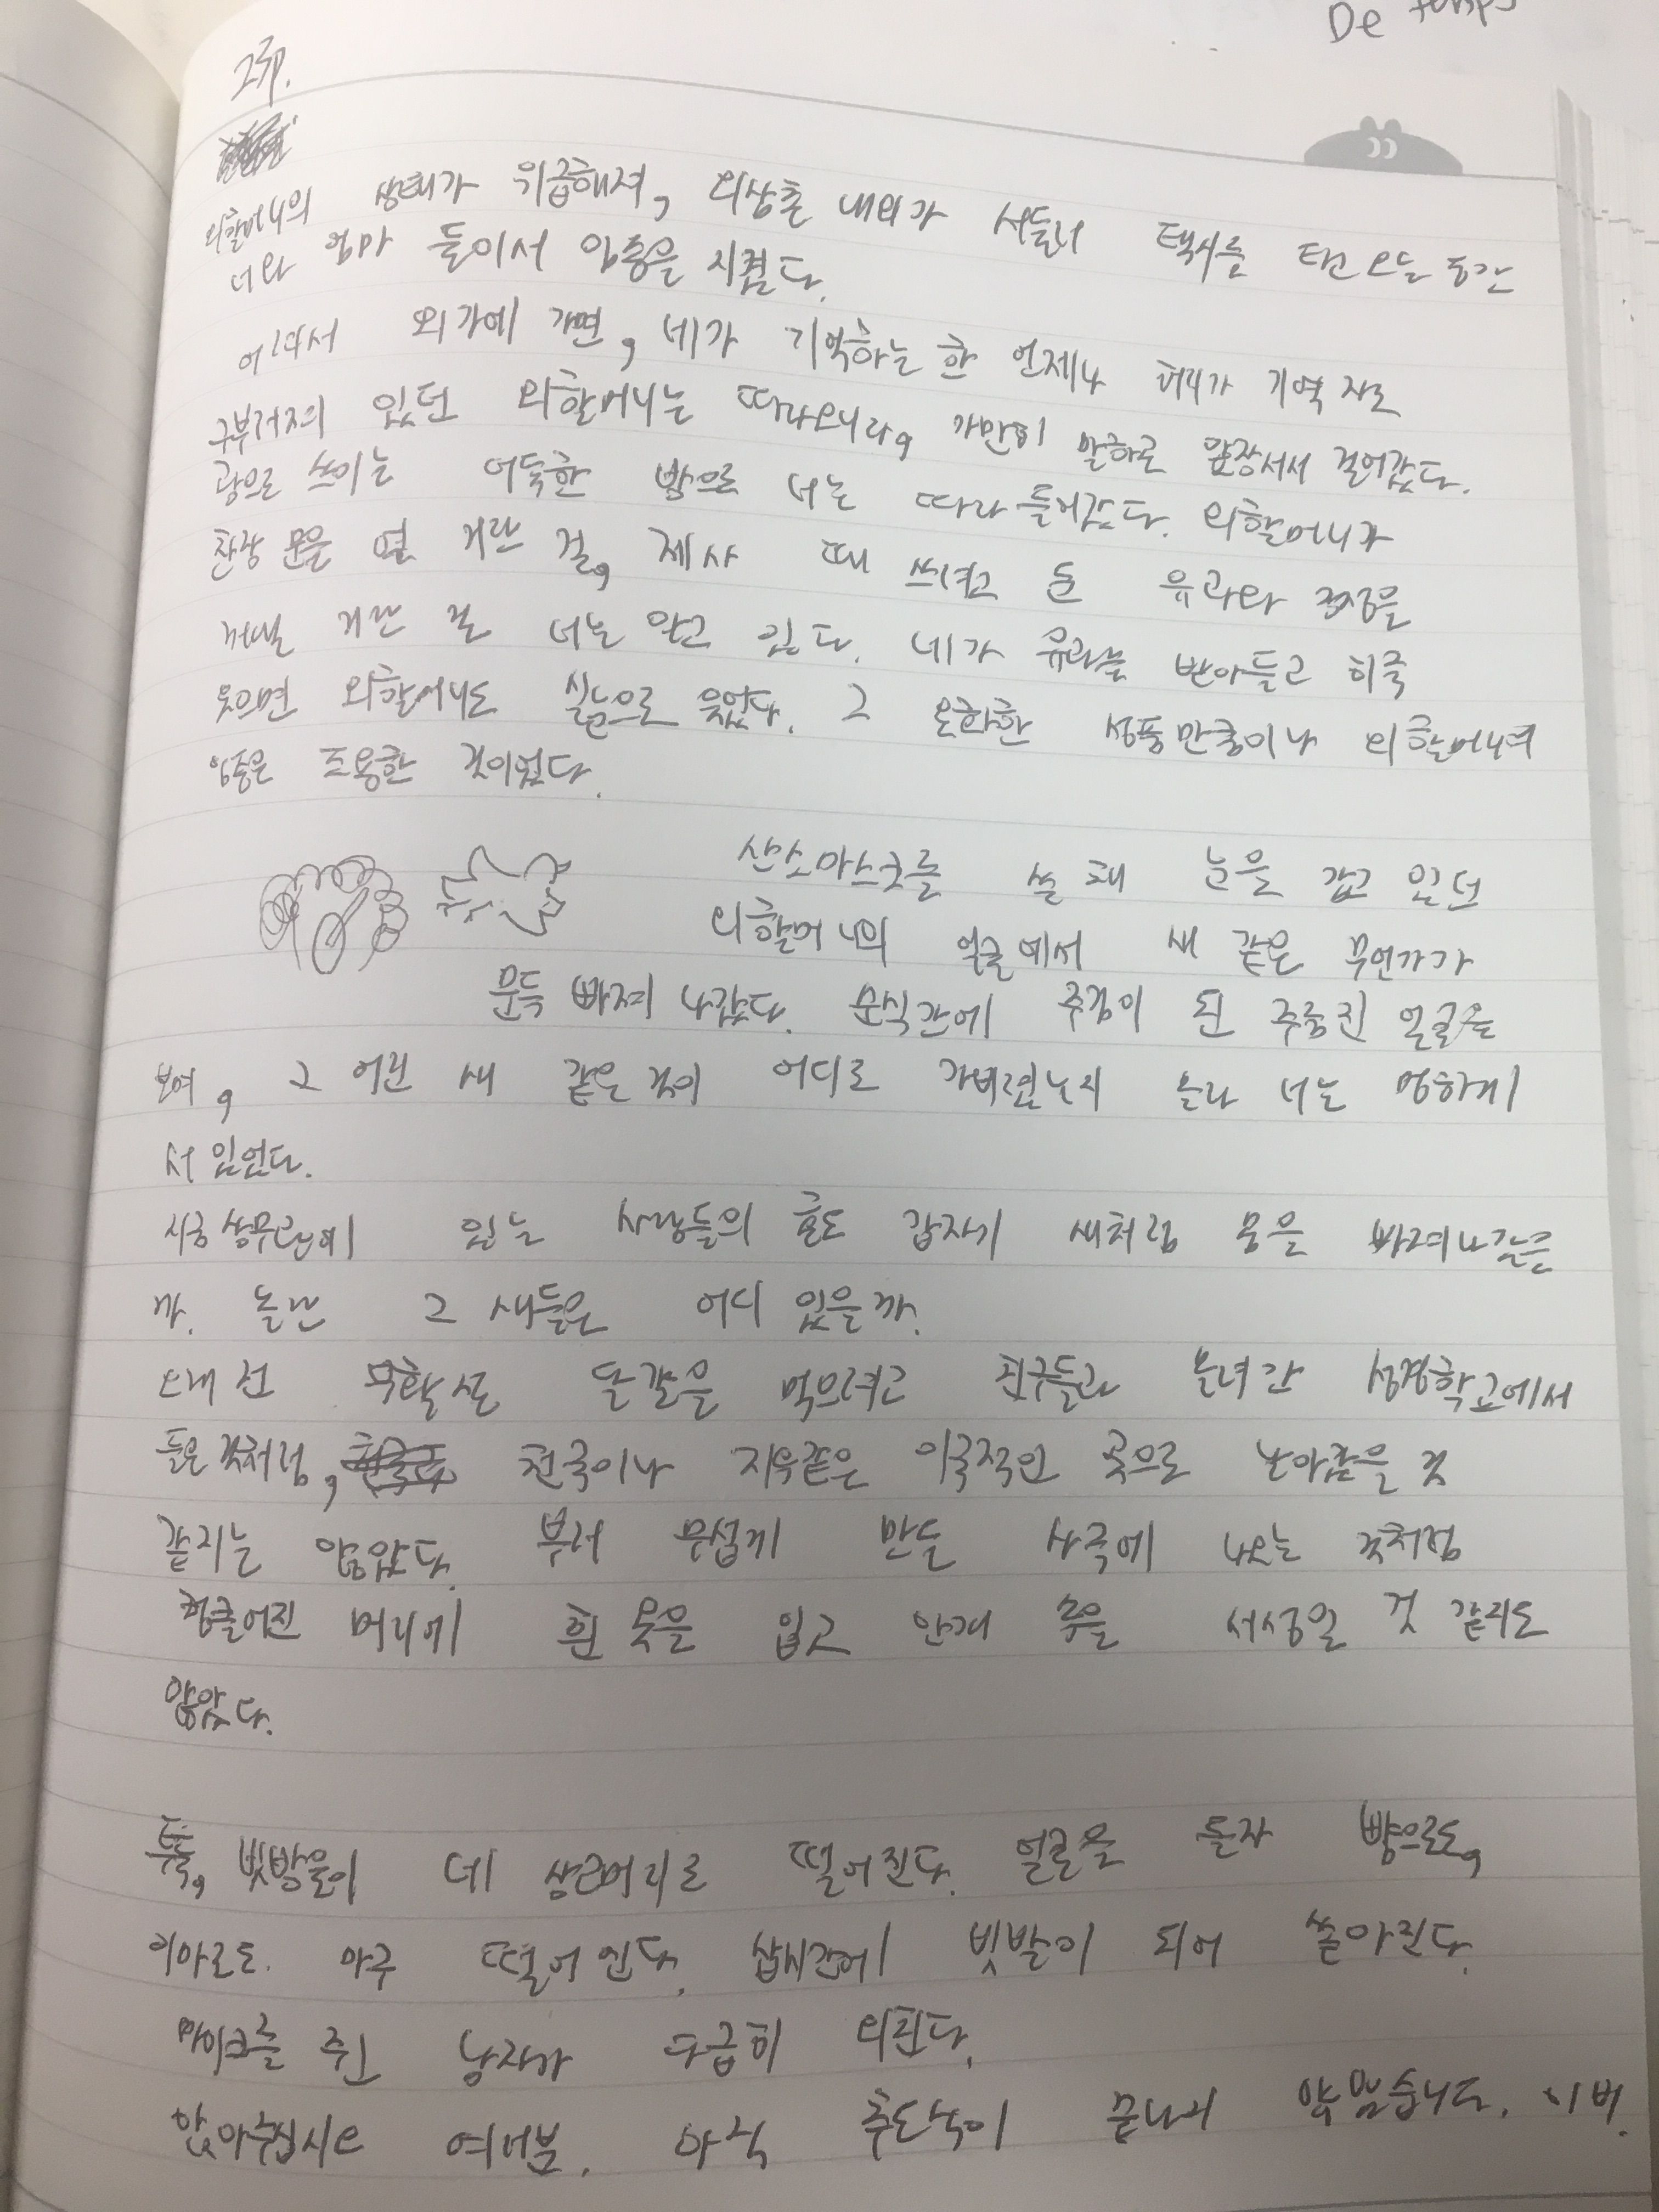 De temps
23p.
외할머니의 상태가 위급해져, 외삼촌 내외가 서둘러 택시를 타고 오는 동안
너와 엄마 둘이서 임종을 지켰다.
어려서 외가에 가면, 네가 기억하는 한 언제나 허리가 기역 자로
구부러져 있던 외할머니는 따라오너라, 가만히 말하고 앞장서서 걸어갔다.
광으로 쓰이는 어둑한 방으로 너는 따라 들어갔다. 외할머니가
찬장 문을 열 거란 걸, 제사 때 쓰려고 둔 유과와 강정을
꺼낼 거란 걸 너는 알고 있다. 네가 유과를 받아들고 히죽
웃으면 외할머니도 실눈으로 웃었다. 그 온화한 성품만큼이나 외할머니의
임종은 조용한 것이었다.
산소마스크를 쓴 채 눈을 감고 있던
외할머니의 얼굴에서 새 같은 무언가가
문득 빠져 나갔다. 순식간에 주검이 된 주름진 얼굴을
보며, 그 어린 새 같은 것이 어디로 가버렸는지 몰라 너는 멍하게
서 있었다.
지금 상무관에 있는 사람들의 혼도 갑자기 새처럼 몸을 빠져나갔을
까. 놀란 그 새들은 어디 있을까.
오래 전 부활절 달걀을 먹으려고 친구들과 몰려간 성경학교에서
들은 것처럼, 천국이나 지옥같은 이국적인 곳으로 날아갔을 것
같지는 않았다. 부러 무섭게 만든 사극에 나오는 것처럼
헝클어진 머리에 흰 옷을 입고 안개 속을 서성일 것 같지도
않았다.
툭, 빗방울이 네 상고머리로 떨어진다. 얼굴을 들자 뺨으로도,
이마로도. 마구 떨어진다. 삽시간에 빗발이 되어 쏟아진다.
마이크를 쥔 남자가 다급히 외친다.
앉아주십시오 여러분. 아직 추도식이 끝나지 않았습니다. 이 비